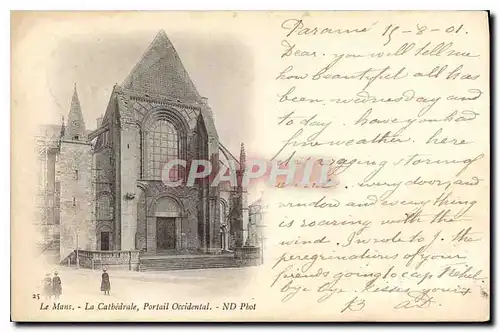 Paramé 15-8-01.
Dear. you will tell me
how beautiful all has
been. wednesday and
to day. have you had
fine weather. here
raging storming
every door and
window and everything
is roaring with the
wind. I wrote to J. the
peregrinations of your
friends going to cap
bye bye. Kisses yours
CARTE PHILA
25 Le Mans. - La Cathédrale, Portail Occidental. - ND Phot